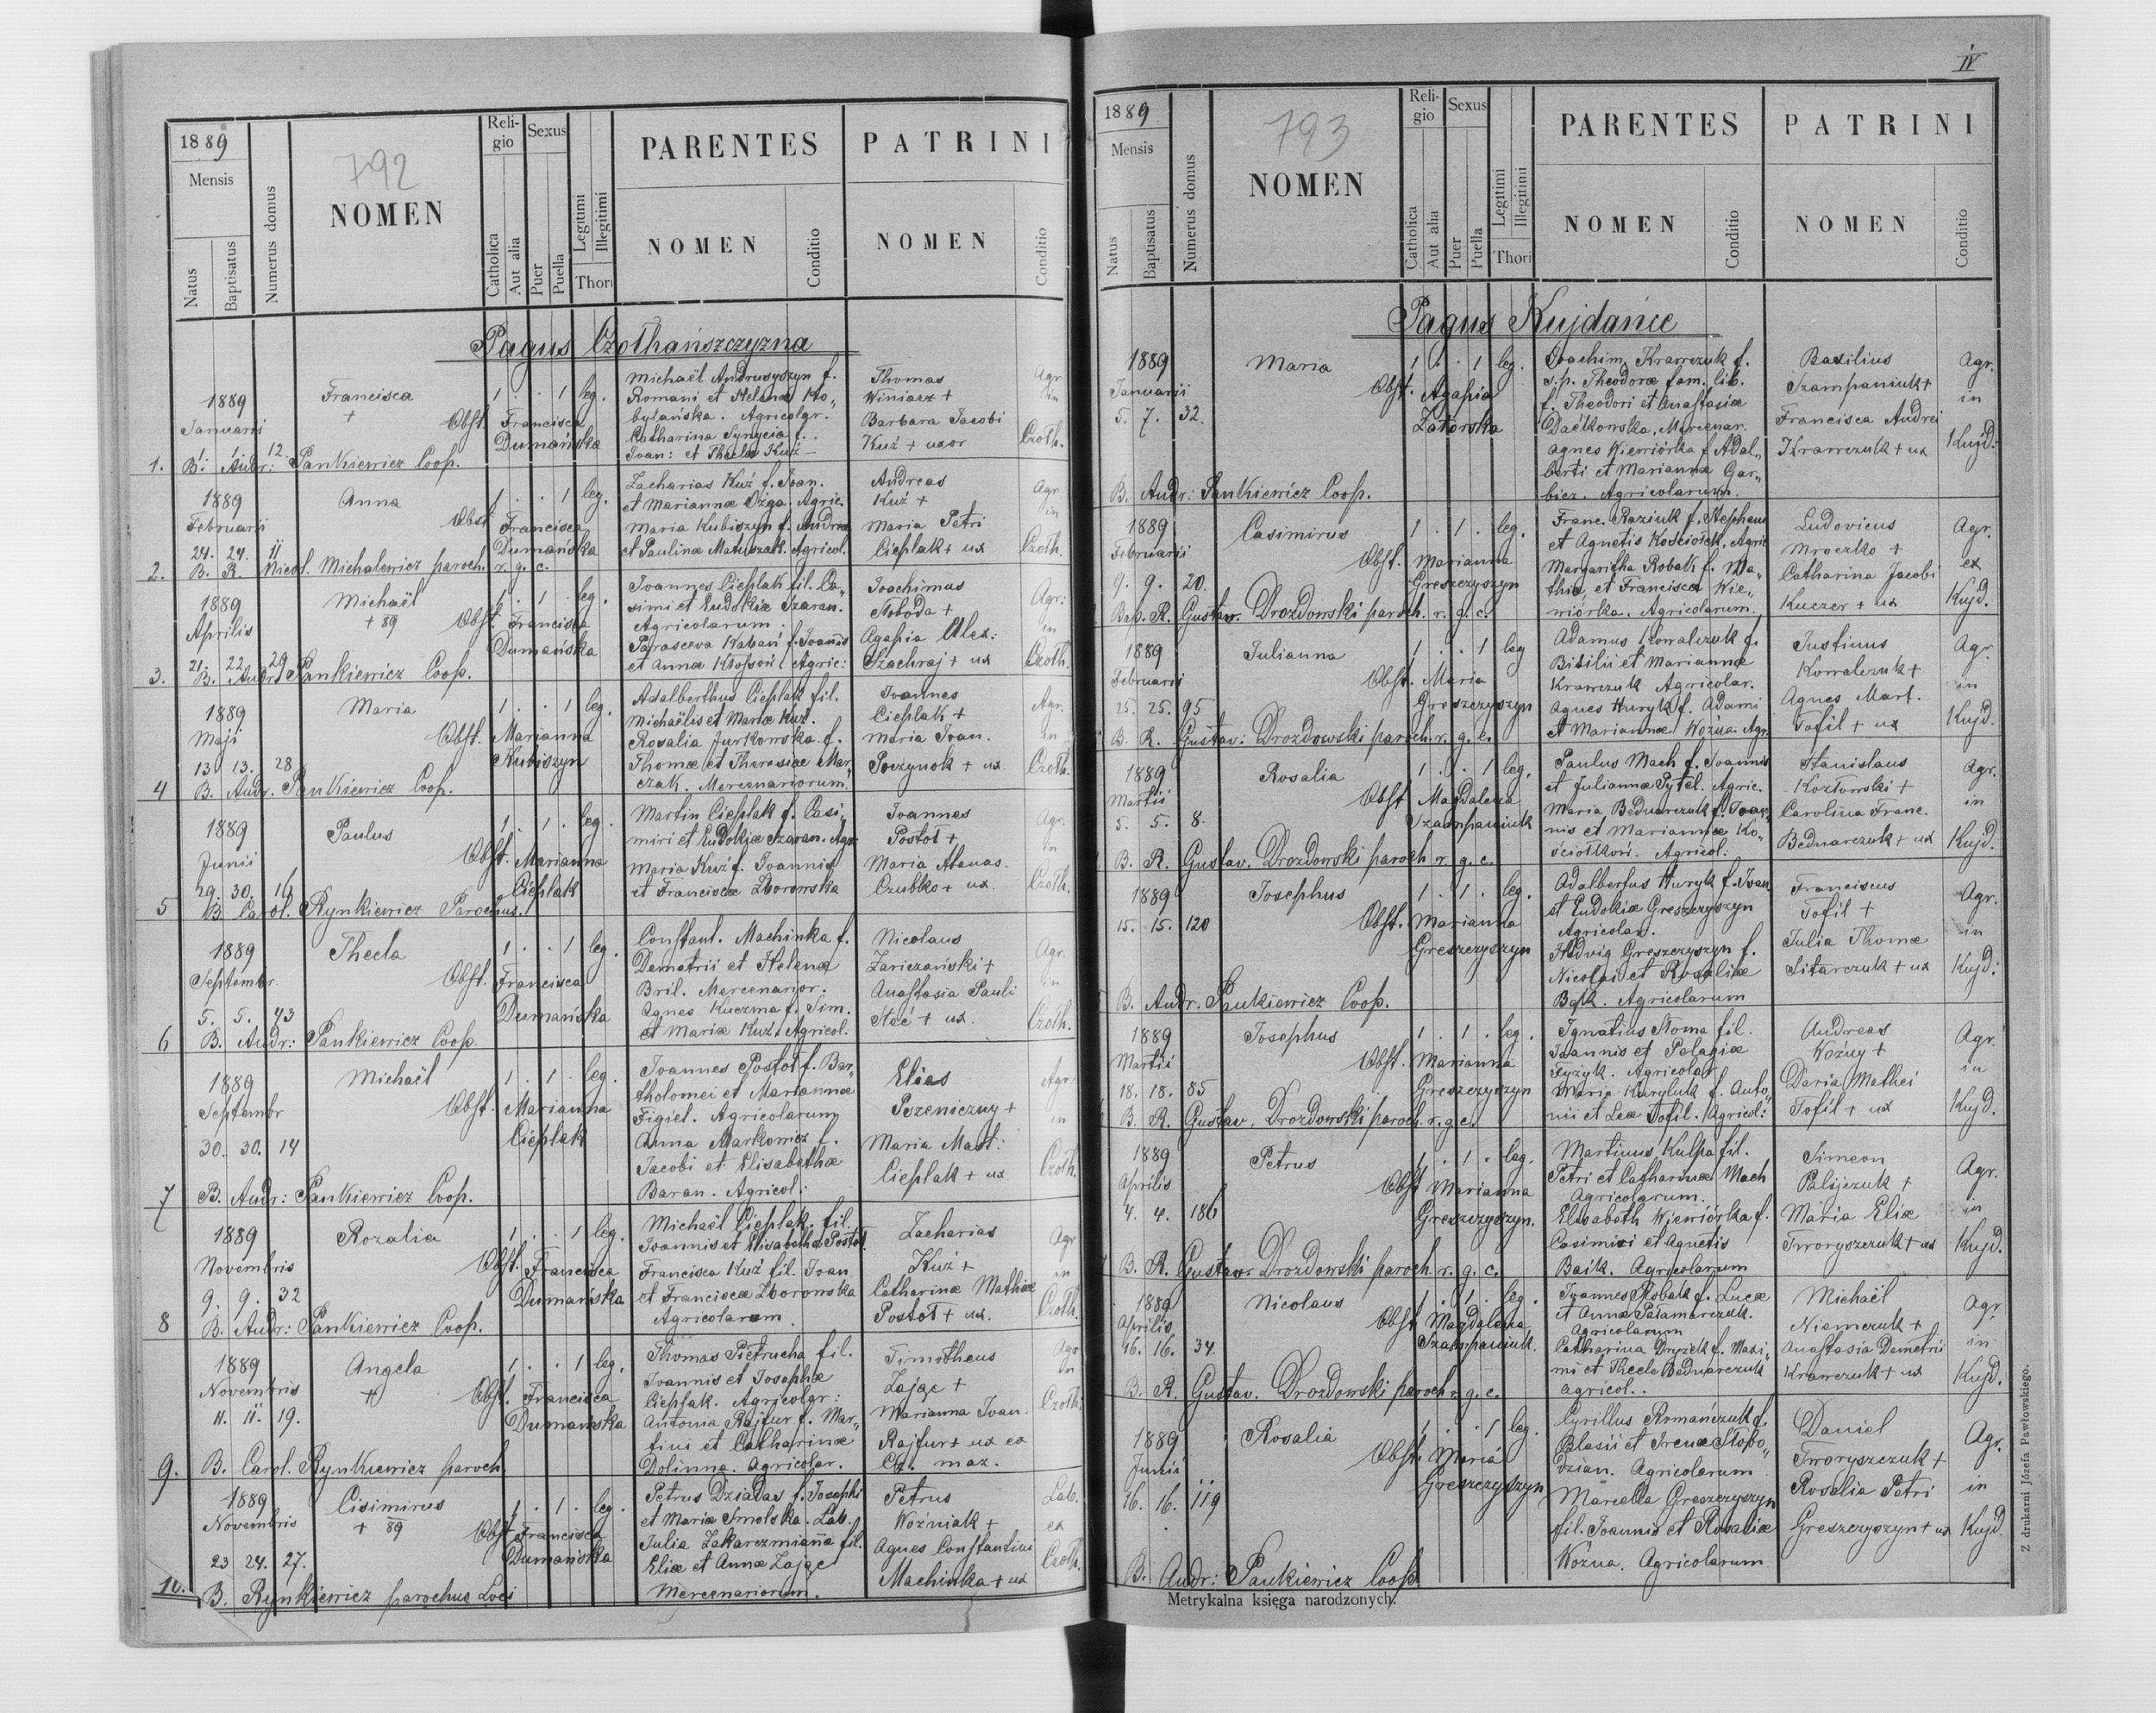 1889
Mensis
Natus
Baptisatus
Numerus domus
792
NOMEN
Reli-
gio
Catholica
Aut alia
Sexus
Puer
Puella
Legitimi
Illegitimi
Thori
PARENTES
NOMEN
Conditio
PATRINI
NOMEN
Conditio
Pagus Czołhańszczyzna
1. 1889
Januarii
1. 1. 12.
Francisca
+
1 . . 1 leg.
Obst. Francisca
Dumańska
Michaël Andrusyszyn f.
Romani et Helenæ Ko„
bylańska. Agricolgr.
Catharina Synycia f.
Joan: et Theclæ Kuź
Thomas
Winiarz +
Barbara Jacobi
Kuź + uxor
Agr.
in
Czołh.
B. Andr: Pankiewicz Coop.
2. 1889
Februarii
24. 24. 11
Anna
1 . . 1 leg.
Obst Francisca
Dumańska
Zacharias Kuź f. Joan.
et Mariannæ Dziga. Agric.
Maria Kubiszyn f. Andreæ
et Paulinæ Matuszak. Agricol.
Andreas
Kuź +
Maria Petri
Cieplak + ux
Agr
in
Czołh.
B. R. Nicol. Michalewicz paroch. r. g. c.
3. 1889
Aprilis
21. 22. 29
Michaël
+ 89
1 . 1 . leg.
Obst. Francisca
Dumańska
Joannes Cieplak fil. Ca„
simi et Eudokiæ Szaran.
Agricolarum.
Parasceva Kabań f. Joannis
et Annæ Kłosson. Agric:
Joachimus
Słoboda +
Agapia Alex:
Szachraj + ux
Agr:
in
Czołh.
B. Andr. Pankiewicz Coop.
4 1889
Maji
13 13. 28
Maria
1 . . 1 leg.
Obst. Marianna
Kubiszyn
Adalberthus Cieplak fil.
Michaëlis et Mariæ Kuź.
Rosalia Jurkowska f.
Thomæ et Theresiæ Mar„
czak. Mercenariorum
Joannes
Cieplak +
Maria Joan.
Poczynok + ux
Agr.
in
Czołh.
B. Andr. Pankiewicz Coop.
5 1889
Junii
29. 30. 16
Paulus
1 . 1 . leg.
Obst. Marianna
Cieplak
Martin Cieplak f. Casi„
miri et Eudokiæ Szaran. Agr.
Maria Kuź f. Joannis
et Franciscæ Zborowska
Joannes
Postoł +
Maria Atanas.
Czubko + ux.
Agr.
in
Czołh.
B Carol. Rynkiewicz Parochus.
6 1889
Septembr.
5. 5. 43
Thecla
1 . . 1 leg.
Obst. Francisca
Dumańska
Constant. Machinka f.
Demetrii et Helenæ
Bril. Mercenarior.
Agnes Kuczma f. Sim.
et Mariæ Kuź. Agricol.
Nicolaus
Zariczański +
Anastasia Pauli
Steć + ux.
Agr.
in
Czołh.
B. Andr: Pankiewicz Coop.
7 1889
Septembr
30. 30. 14
Michaël
1 . 1 . leg.
Obst. Marianna
Cieplak
Joannes Postoł f. Bar„
tholomei et Mariannæ
Figiel. Agricolarum
Anna Markowicz f.
Jacobi et Elisabethæ
Baran. Agricol:
Elias
Pszeniczny +
Maria Mart:
Cieplak + ux
Agr.
in
Czołh.
B. Andr: Pankiewicz Coop.
8 1889
Novembris
9. 9. 32
Rozalia
1 . . 1 leg.
Obst. Francisca
Dumańska
Michaël Cieplak. fil.
Joannis et Elisabethæ Postoł.
Francisca Kuź fil. Joan.
et Franciscæ Zborowska
Agricolarum.
Zacharias
Kuź +
Catharina Mathiæ
Postoł + ux.
Agr
in
Czołh.
B. Andr: Pankiewicz Coop.
9. 1889
Novembris
11. 11. 19.
Angela
+
1 . . 1 leg.
Obst. Francisca
Dumańska
Thomas Pietrucha fil.
Joannis et Josephæ
Cieplak. Agricolgr:
Antonia Rajfur f. Mar„
tini et Catharinæ
Dolinna. Agricolar.
Timotheus
Zając +
Marianna Joan.
Rajfur + ux ex
Cz. maz.
Agr
in
Czołh.
B. Carol. Rynkiewicz paroch.
10. 1889
Novembris
23 24. 27.
Cisimirus
+ 89
1 . 1 . leg.
Obst Francisca
Dumańska
Petrus Dziadas f. Josephi
et Mariæ Smolska. Lab.
Julia Zakarczmianna fil.
Eliæ et Annæ Zając
Mercenariorum.
Petrus
Woźniak +
Agnes Constantini
Machinka + ux
Lab.
ex
Czołh.
B. Rynkiewicz parochus Loci
IV
1889
Mensis
Natus
Baptisatus
Numerus domus
793
NOMEN
Reli-
gio
Catholica
Aut alia
Sexus
Puer
Puella
Legitimi
Illegitimi
Thori
PARENTES
NOMEN
Conditio
PATRINI
NOMEN
Conditio
Pagus Kujdańce
1889
Januarii
5. 7. 32.
Maria
1 . . 1 leg.
Obst. Agapia
Zatorska
Joachim Krawczuk f.
s.p. Theodoræ fam. lib.
f. Theodori et Anastasiæ
Daćkowska. Mercenar.
Agnes Wiewiórka f. Adal„
berti et Mariannæ Gar„
bicz. Agricolarum.
Basilius
Szampaniuk +
Francisca Andrei
Krawczuk + ux
Agr.
in
Kujd.
B. Andr: Pankiewicz Coop.
1889
Februarii
9. 9. 20.
Casimirus
1 . 1 . leg.
Obst. Marianna
Greszczyszyn
Franc. Raziuk f. Stephani
et Agnetis Kościołek. Agric
Margaritha Robak f. Ma„
thiæ et Francisca Wie„
wiórka. Agricolarum.
Ludovicus
Mroczko +
Catharina Jacobi
Kuczer + ux
Agr.
ex
Kujd.
Bap. R. Gustaw. Drozdowski paroch. r. g. c.
1889
Februarii
25. 25. 95
Julianna
1 . . 1 leg
Obst. Maria
Greszczyszyn
Adamus Kowalczuk f.
Bisilii et Mariannæ
Krawczuk Agricolar.
Agnes Huryk f. Adami
et Mariannæ Woźna. Agr.
Justinus
Kowalczuk +
Agnes Mart.
Tofil + ux
Agr.
in
Kujd.
B. R. Gustav: Drozdowski paroch. r. g. c.
1889
Martii
5. 5. 8.
Rosalia
1 . . 1 leg.
Obst Magdalena
Szampaniuk
Paulus Mach f. Joannis
et Juliannæ Pytel. Agric.
Maria Bednarczuk f. Joan„
nis et Mariannæ Ko„
ściołkoń. Agricol:
Stanislaus
Kozłowski +
Carolina Franc.
Bednarczuk + ux
Agr.
in
Kujd.
B. R. Gustav. Drozdowski paroch r. g. c.
1889
15. 15. 120
Josephus
1 . 1 . leg.
Obst. Marianna
Greszczyszyn
Adalbertus Huryk f. Joan
et Eudokiæ Greszczyszyn
Agricolar.
Hedvig Greszczyszyn f.
Nicolai et Rosaliæ
Bąk. Agricolarum
Franciscus
Tofil +
Julia Thomæ
Sitarczuk + ux
Agr.
in
Kujd:
B. Andr. Pankiewicz Coop.
1889
Martii
18. 18. 85
Josephus
1 . 1 . leg.
Obst. Marianna
Greszczyszyn
Ignatius Stoma fil.
Joannis et Pelagiæ
Agricolar.
Maria Kuryluk f. Anto„
nii et Leæ Tofil. Agricol:
Andreas
Woźny +
Daria Mathei
Tofil + ux
Agr.
in
Kujd.
B. R. Gustav. Drozdowski paroch. r. g c.
1889
Aprilis
4. 4. 186
Petrus
1 . 1 . leg.
Obst Marianna
Greszczyszyn.
Martinus Kulpa fil.
Petri et Catharinæ Mach
Agricolarum.
Elisabeth Wiewiórka f.
Casimiri et Agnetis
Baik. Agricolarum
Simeon
Palijczuk +
Maria Eliæ
Tworyszczuk + ux
Agr.
in
Kujd.
B. R. Gustaw. Drozdowski paroch. r. g. c.
1889
Aprilis
16. 16. 34.
Nicolaus
1 . 1 . leg.
Obst Magdalena
Szampaniuk.
Joannes Robak f. Lucæ
et Annæ Pałamarczuk.
Agricolarum
Catharina f. Maxi„
mi et Theclæ Bednarczuk
agricol..
Michaël
Niemczuk +
Anastasia Demetrii
Krawczuk + ux
Agr.
in
Kujd.
B. R. Gustav. Drozdowski paroch r. g. c.
1889
Junii
16. 16. 119
Rosalia
1 . . 1 leg.
Obst. Maria
Greszczyszyn
Cyrillus Romańczuk f.
Blasii et Irenæ Słobo„
dzian. Agricolarum
Marcella Greszczyszyn
fil. Joannis et Rosaliæ
Woźna. Agricolarum
Daniel
Tworyszczuk +
Rosalia Petri
Greszczyszyn + ux
Agr.
in
Kujd.
B. Andr: Pankiewicz Coop.
Metrykalna księga narodzonych.
Z drukarni Józefa Pawłowskiego.